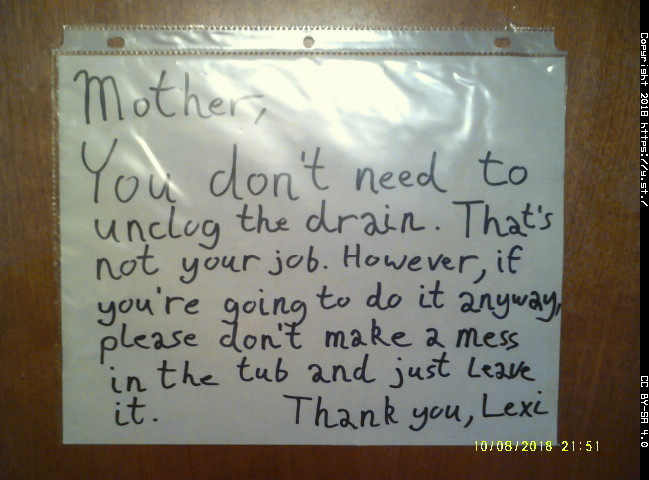 Mother,
You don't need to
unclog the drain. That's
not your job. However, if
you're going to do it anyway,
please don't make a mess
in the tub and just leave
it. Thank you, Lexi
10/08/2018 21:51
Copyright 2018 https://y.st./
CC BY-SA 4.0